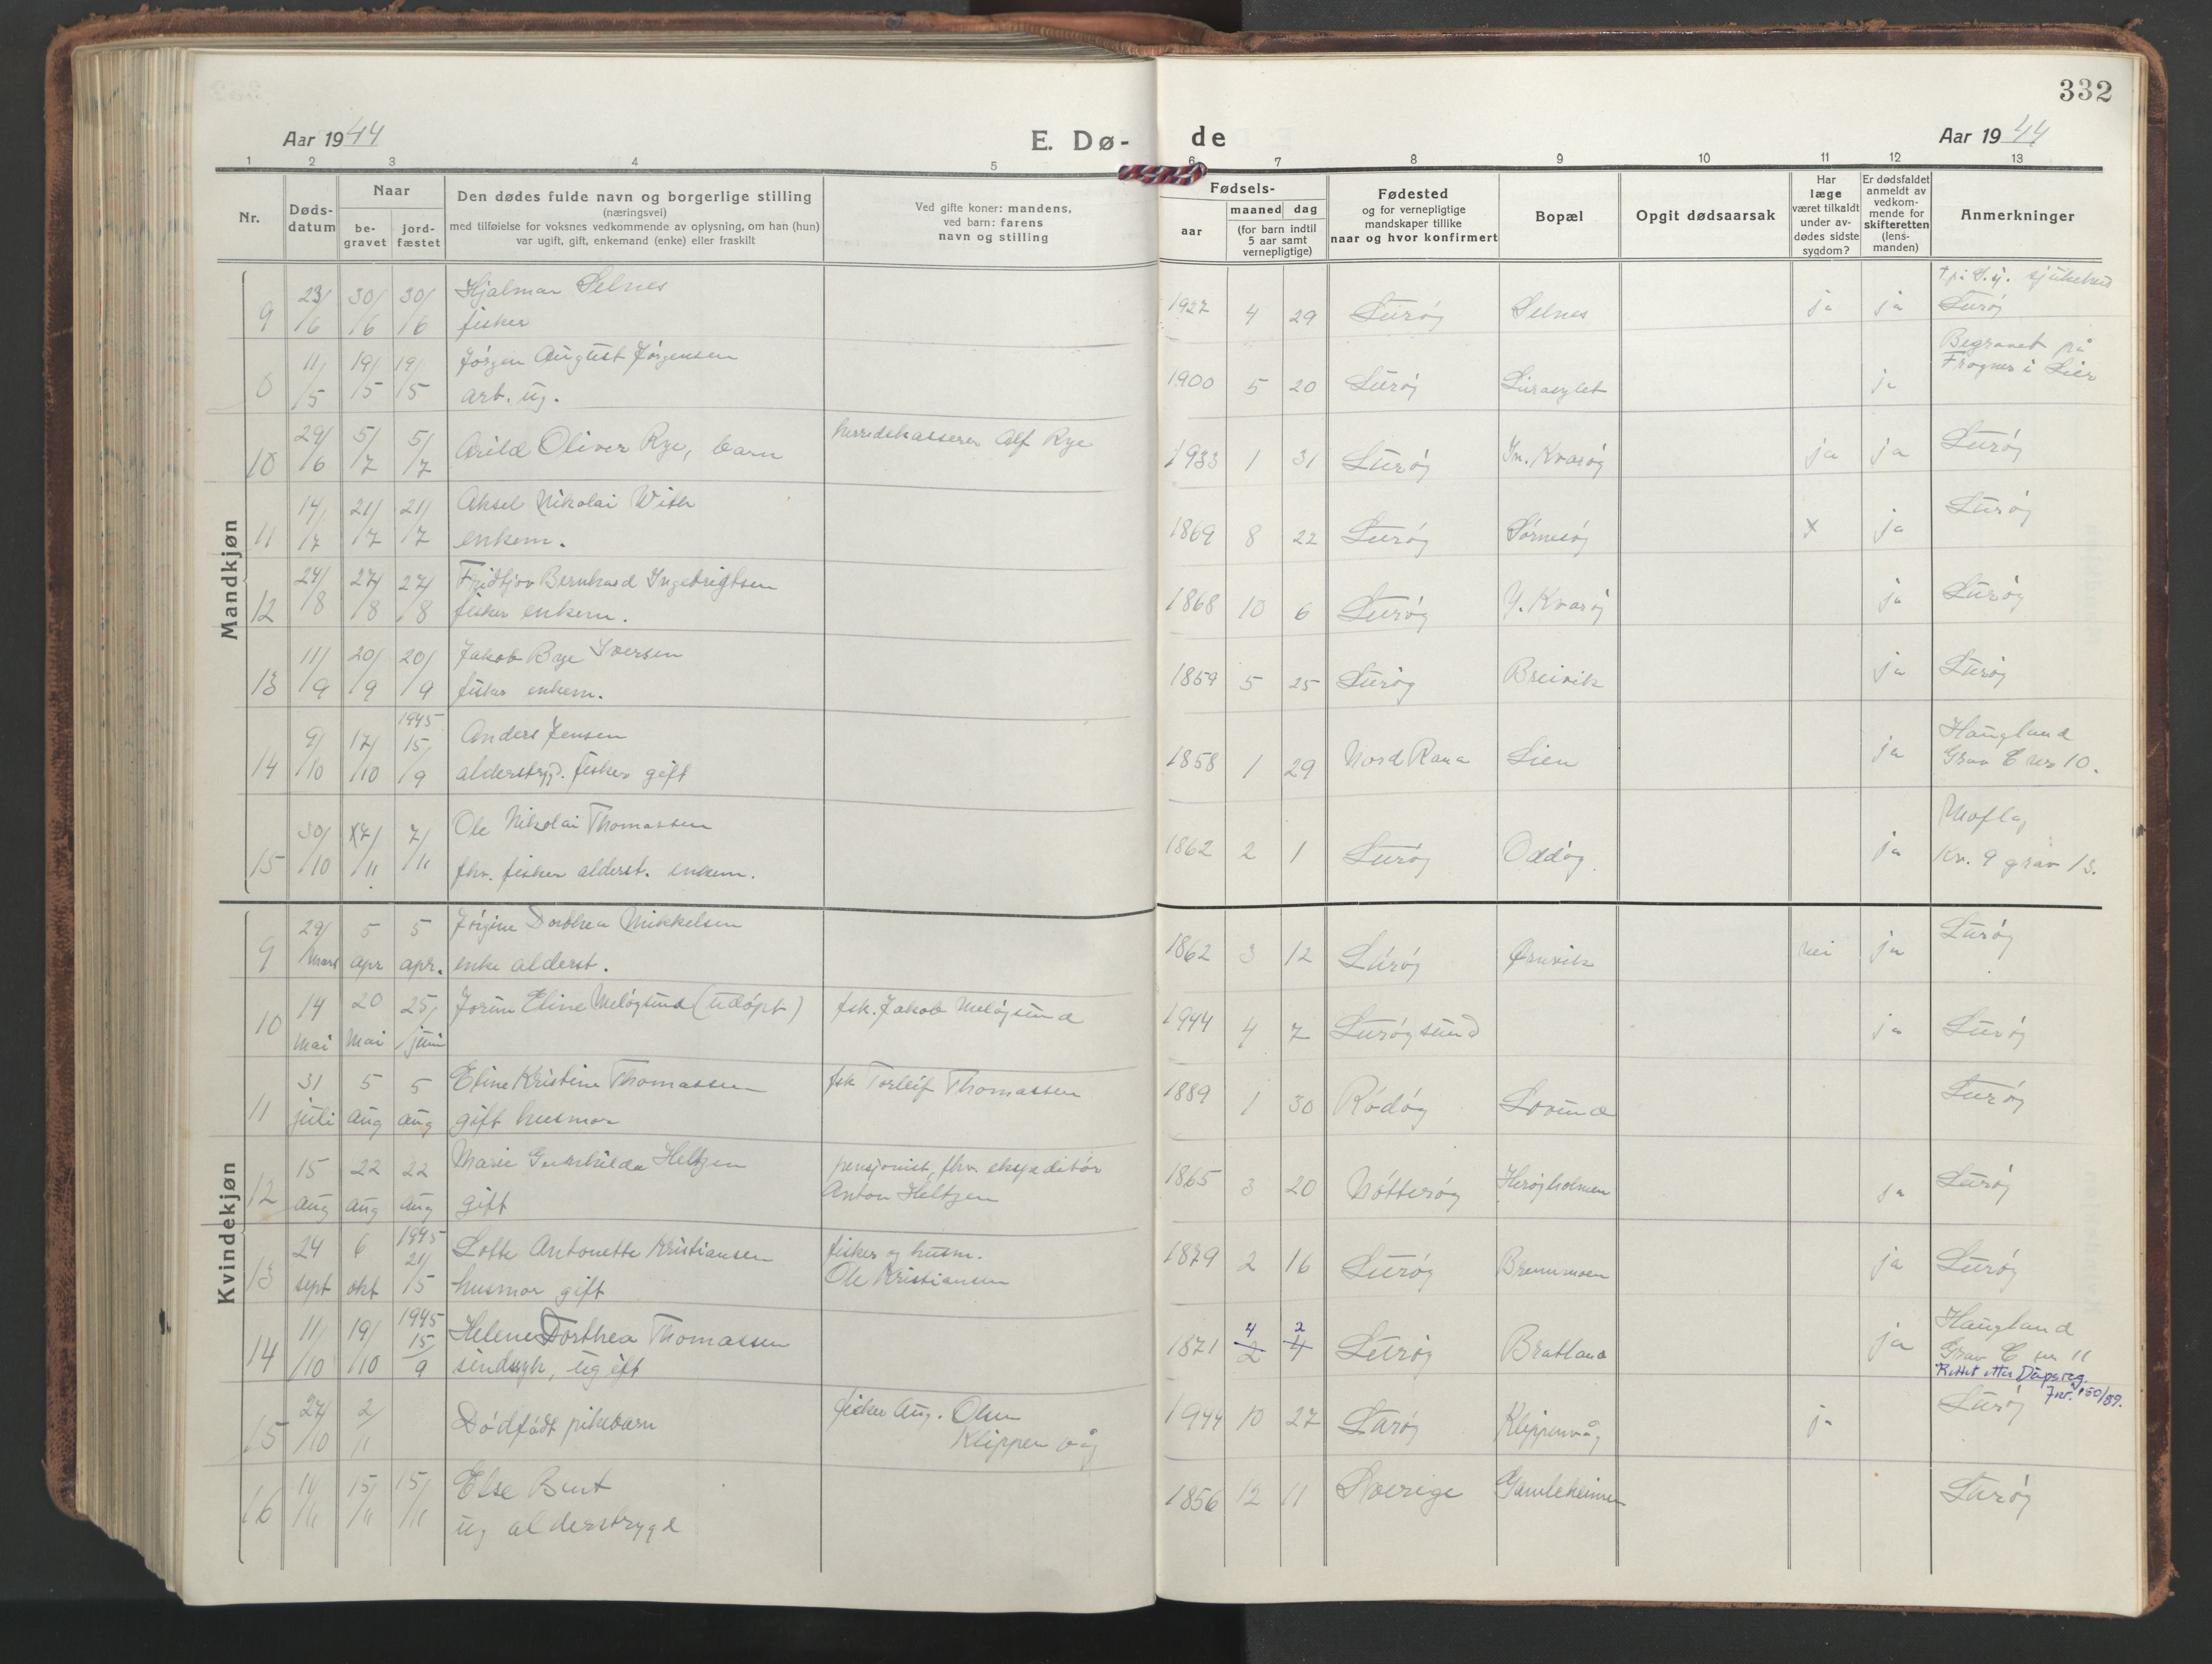 332
Aar 1944
E. Dø-
de
Aar 1944
1 2 3 4 5 6 7 8 9 10 11 12 13
Nr.
Døds-
datum
Naar
be-
gravet
jord-
fæstet
Den dødes fulde navn og borgerlige stilling
(næringsvei)
med tilføielse for voksnes vedkommende av oplysning, om han (hun)
var ugift, gift, enkemand (enke) eller fraskilt
Ved gifte koner: mandens,
ved barn: farens
navn og stilling
Fødsels-
aar
maaned dag
(for barn indtil
5 aar samt
vernepligtige)
Fødested
og for vernepligtige
mandskaper tillike
naar og hvor konfirmert
Bopæl
Opgit dødsaarsak
Har
læge
været tilkaldt
under av-
dødes sidste
sygdom?
Er dødsfaldet
anmeldt av
vedkom-
mende for
skifteretten
(lens-
manden)
Anmerkninger
Mandkjøn
9 23/6 30/6 30/6 Hjalmar Selnes
fisker
1927 4 29 Lurøy Selnes ja ja
sjukehus
Lurøy
8 11/5 19/5 19/5 Jørgen August Jørgensen
arb. ug.
1900 5 20 Lurøy ja
Begravet på
Frogner i Lier
10 29/6 5/7 5/7 Arild Oliver Rye, barn
herredskasserer Alf Rye
1933 1 31 Lurøy In. Kvarøy ja ja Lurøy
11 14/7 21/7 21/7 Aksel Nikolai With
enkem.
1869 8 22 Lurøy Sørnesøy x ja Lurøy
12 24/8 27/8 27/8 Fridtjov Bernhard Ingebrigtsen
fisker enkem.
1868 10 6 Lurøy Y. Kvarøy ja Lurøy
13 11/9 20/9 20/9 Jakob Bye Iversen
fisker enkem.
1859 5 25 Lurøy Breivik ja Lurøy
14 9/10 17/10 1945 15/9 Anders Jensen
alderstryg. fisker gift
1858 1 29 Nord Rana Lien ja
Haugland
Grav C nr 10.
15 30/10 7/11 7/11 Ole Nikolai Thomassen
fhv. fisker alderst. enkem.
1862 2 1 Lurøy Oddøy ja
Kv. 9 grav 13.
Kvindekjøn
9 29/mars 5 apr 5 apr. Jørgine Dorthea Mikkelsen
enke alderst.
1862 3 12 Lurøy Ørnvik nei ja Lurøy
10 14 mai 20 mai 25/juni Jorun Eline Meløysund (udøpt)
fsk. Jakob Meløysund
1944 4 7 Lurøysund ja Lurøy
11 31 juli 5 aug 5 aug Eline Kristine Thomassen
gift husmor
fsk Torleif Thomassen
1889 1 30 Rødøy Lovund Lurøy
12 15 aug 22 aug 22 aug Marie Gunhilda Heltzen
gift
pensjonist, fhv. ekspeditør
Anton Heltzen
1865 3 20 Nøtterøy Herøyholmen ja Lurøy
13 24 sept 6 okt 1945 21/5 Lotte Antonette Kristiansen
husmor gift
fisker og husm.
Ole Kristiansen
1879 2 16 Lurøy Bremmoen ja Lurøy
14 11/10 19/10 1945 15/9 Helene Dorthea Thomassen
sindsyk, ugift
1871 4 2 2 4 Lurøy Bratland ja
Haugland
Grav C nr 11
Rettet etter Dåpsreg.
Jnr. 150/89.
15 27/10 2/11 Dødfødt pikebarn
fisker Aug. Olsen
Klippenvåg
1944 10 27 Lurøy Klippenvåg ja Lurøy
16 11/11 15/11 15/11 Else Brut
ug alderstrygd
1856 12 11 Sverige Gamleheimen Lurøy